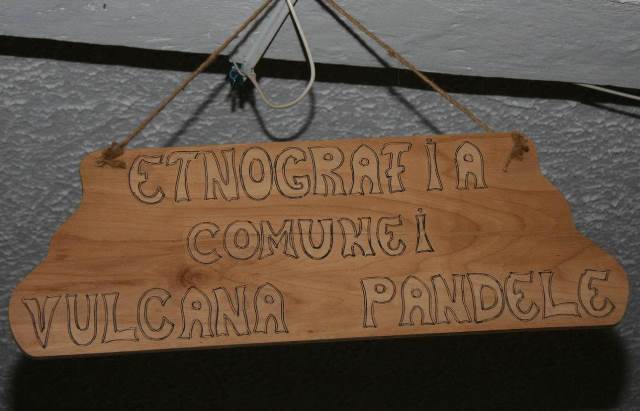 ETNOGRAFiA
COMUNEi
VULCANA PANDELE